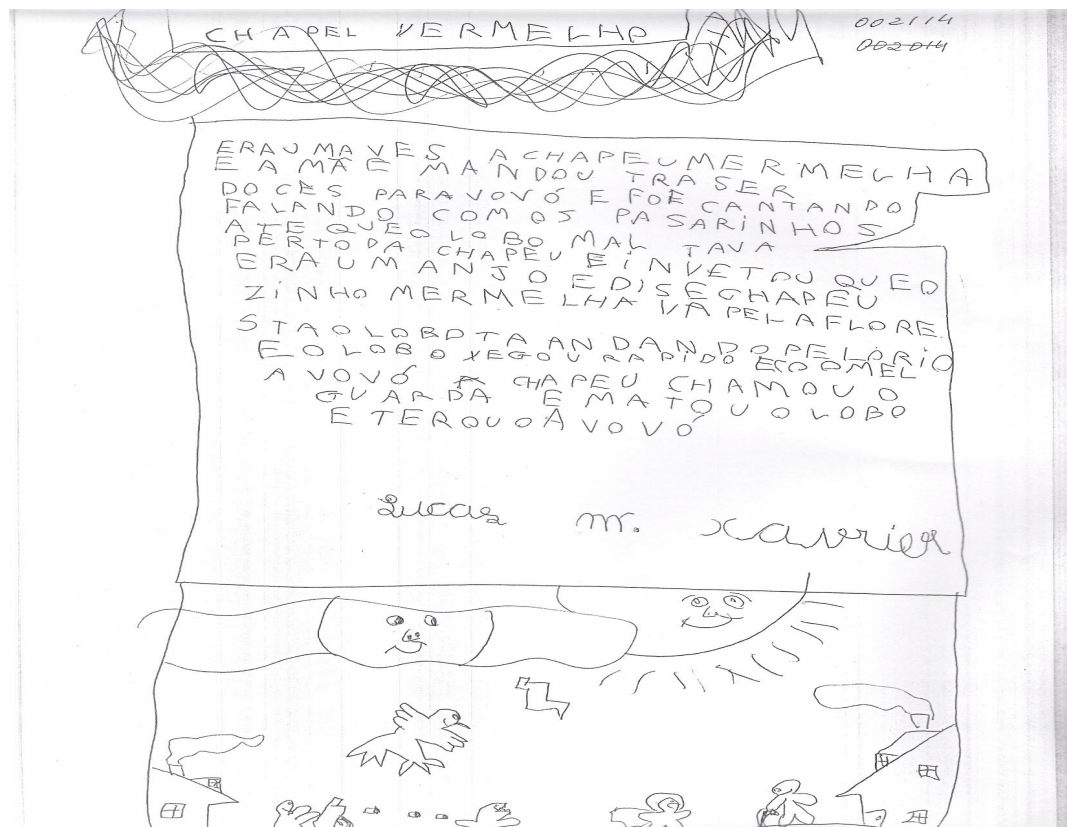 CHAPEL VERMELHO
002114
002014
ERAUMAVES ACHAPEUMERMELHA
E A MÃE MANDOU TRASER
DOCES PARAVOVÓ E FOE CANTANDO
FALANDO COMOS PASARINHOS
ATE QUEOLOBO MAL TAVA
PERTODA CHAPEU EINVETOU QUEO
ERAUMANJO EDISECHAPEU
ZINHO MERMELHA VA PELAFLORE
STAOLOBOTA ANDANDOPELORIO
EOLOBO XEGOU RAPIDO ECOOMEL
AVOVÓ A CHAPEU CHAMOU O
GUARDA EMATOUOLOBO
E TERQUOAVOVÓ
Lucas M. Xavrier